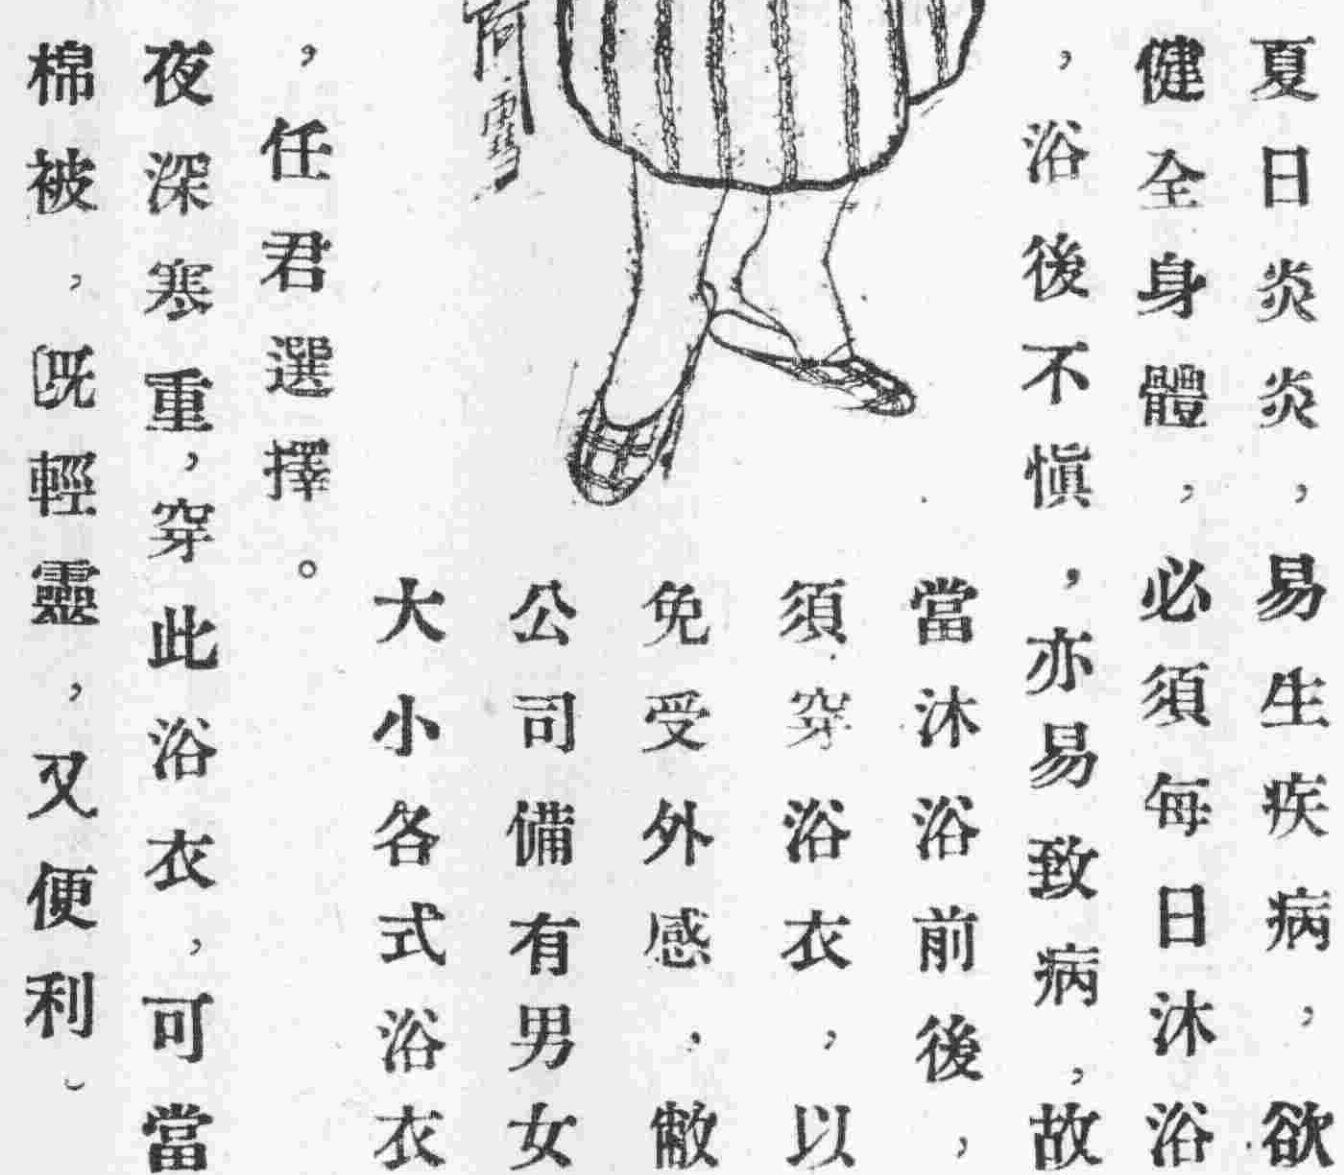 夏日炎炎，易生疾病，欲
健全身體，必須每日沐浴
，浴後不慎，亦易致病，故
當沐浴前後，
須穿浴衣，以
免受外感，敝
公司備有男女
大小各式浴衣
，任君選擇。
夜深寒重，穿此浴衣，可當
棉被，既輕靈，又便利。